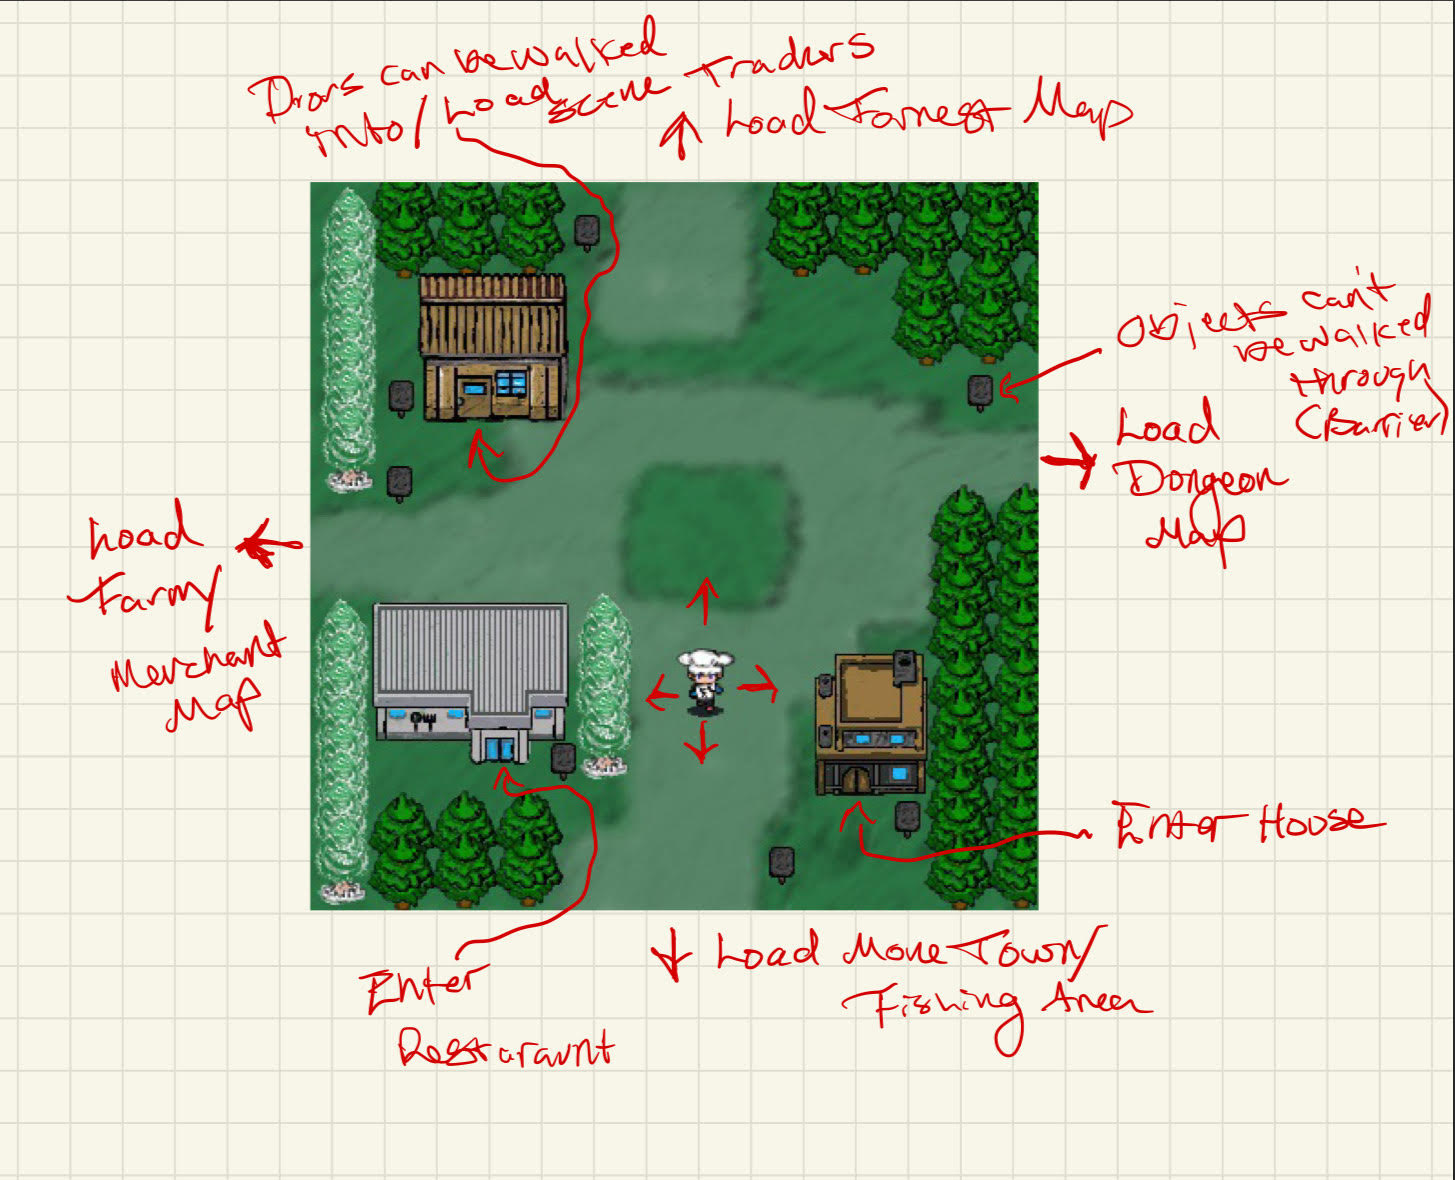 Doors can be walked
into / Load scene Traders
Load Forrest Map
Objects can't
be walked
through
(Barrier)
Load
Dongeon
Map
Load
Farm/
Merchant
Map
Enter House
Load More Town/
Fishing Area
Enter
Restaraunt